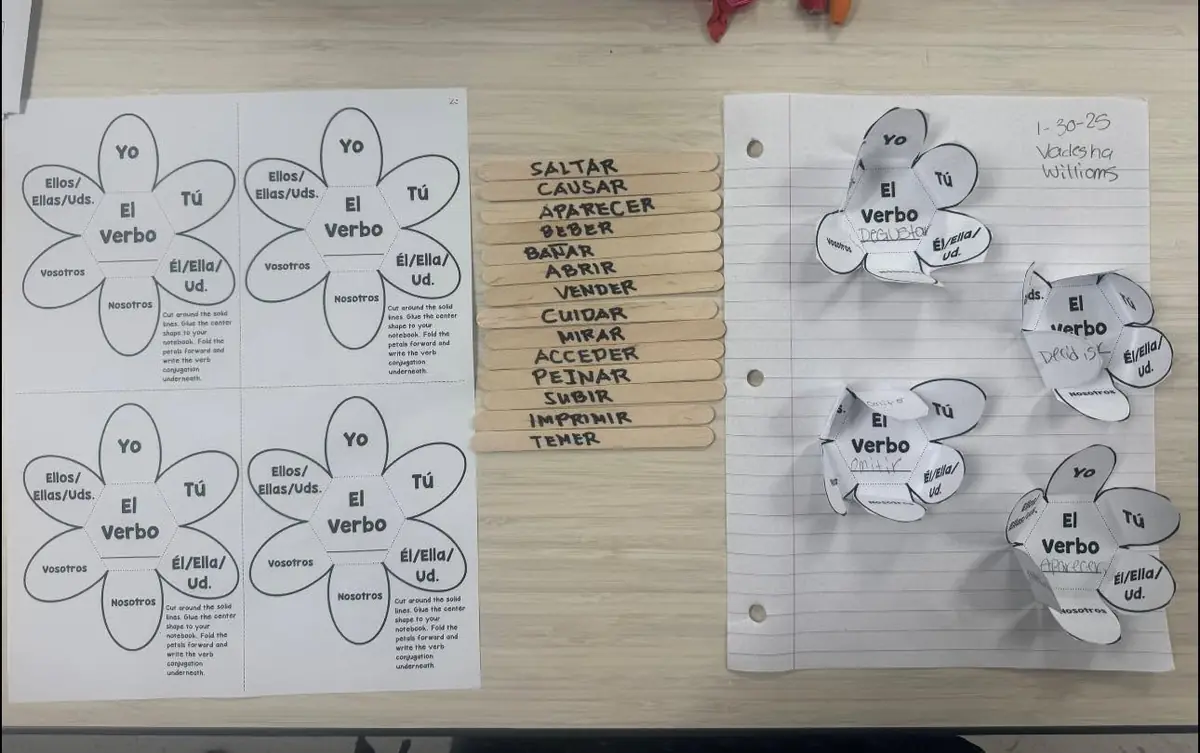 Yo
Tú
Él/Ella/
Ud.
Nosotros
Vosotros
Ellos/
Ellas/Uds.
El
Verbo
Cut around the solid
lines. Glue the center
shape to your
notebook. Fold the
petals forward and
write the verb
conjugation
underneath.
Yo
Tú
Él/Ella/
Ud.
Nosotros
Vosotros
Ellos/
Ellas/Uds.
El
Verbo
Cut around the solid
lines. Glue the center
shape to your
notebook. Fold the
petals forward and
write the verb
conjugation
underneath.
Yo
Tú
Él/Ella/
Ud.
Nosotros
Vosotros
Ellos/
Ellas/Uds.
El
Verbo
Cut around the solid
lines. Glue the center
shape to your
notebook. Fold the
petals forward and
write the verb
conjugation
underneath.
Yo
Tú
Él/Ella/
Ud.
Nosotros
Vosotros
Ellos/
Ellas/Uds.
El
Verbo
Cut around the solid
lines. Glue the center
shape to your
notebook. Fold the
petals forward and
write the verb
conjugation
underneath.
SALTAR
CAUSAR
APARECER
BEBER
BAÑAR
ABRIR
VENDER
CUIDAR
MIRAR
ACCEDER
PEINAR
SUBIR
IMPRIMIR
TEMER
1-30-25
Vadesha
Williams
Yo
Tú
Él/Ella/
Ud.
Vosotros
El
Verbo
Degustar
ds.
El
Verbo
Tú
Él/Ella/
Ud.
Nosotros
s.
El
Verbo
omitir
Tú
Él/Ella/
Ud.
Nosotros
Yo
Tú
Él/Ella/
Ud.
Nosotros
El
Verbo
Aparecer